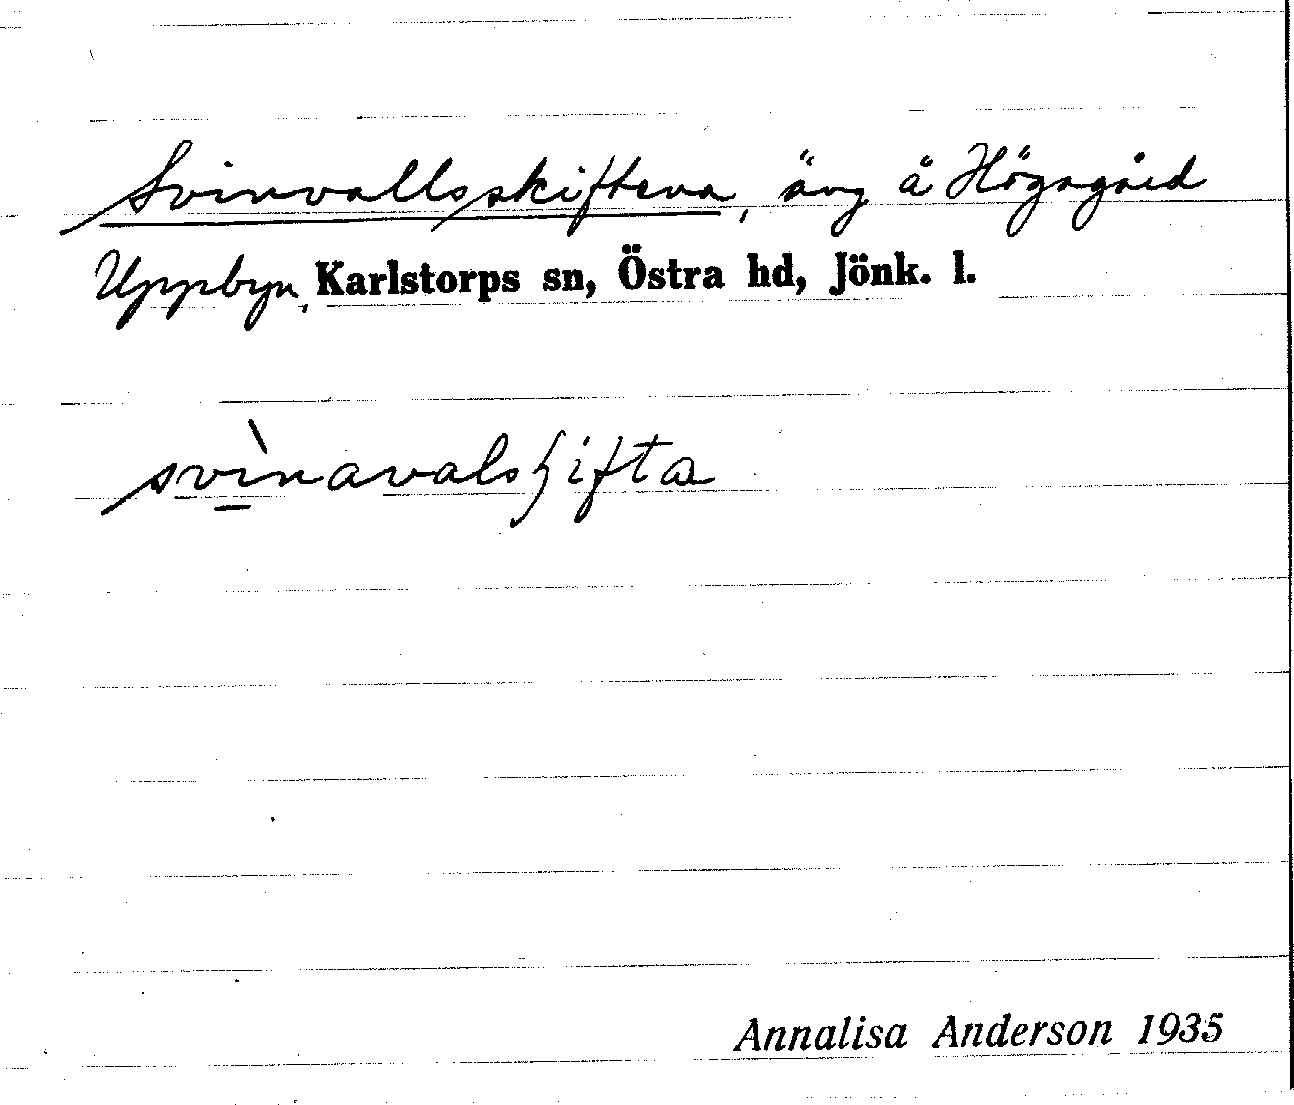 Svinvallsskiftena, äng å Högagärd
Uppbyn, Karlstorps sn, Östra hd, Jönk. l.
svì̠navalsʃifta
Annalisa Anderson 1935